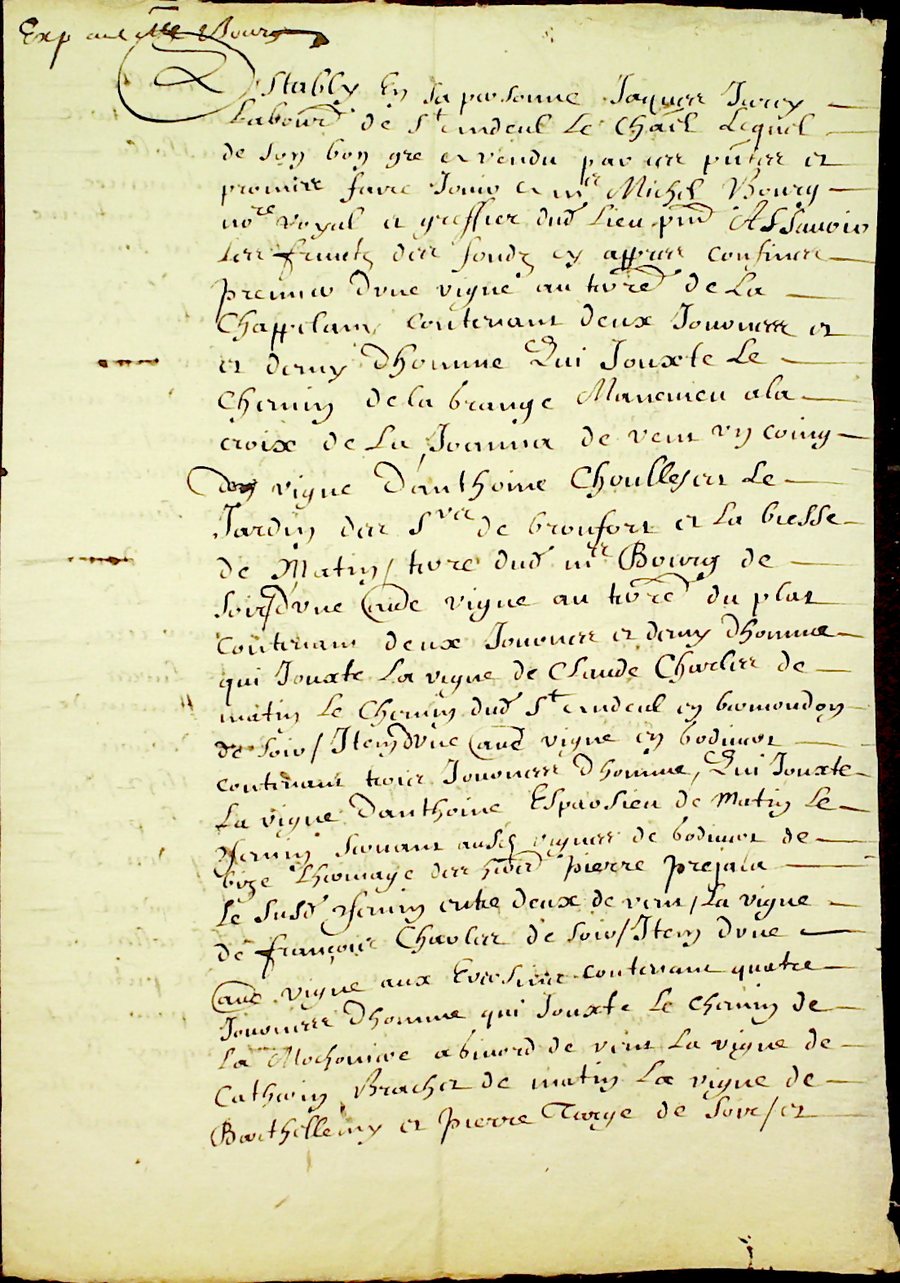 Exp aud Me Bourg
Establly En sa personne Jaques Jurey
Labourr de St andeul Le Chaël Lequel
de son bon gre a vendu par ces pntes et
promis faire Jouir a mre Michel Bourg
nore royal et greffier dud Lieu pnt Assavoir
Les fruictz des fondz cy appres confines
premier Dune vigne au terre de La
Chappelam contenant deux Journees et
et demy dhomme Qui Jouxte Le
Chemin de la brange Manenieu a la
croix de La Joanna de vent un coing
de vigne Danthoine Choullejas Le
Jardin des Srs de bronfort et La biesse
de Matin / terre dud mre Bourg de
soir / dune aude vigne au terre du plat
Contenant deux Journees et demy dhomme
qui Jouxte La vigne de Claude Charles de
matin Le Chemin dud St andeul en bromondon
de soir / Item dune aud vigne en bodimot
contenant trois Journees dhomme, Qui Jouxte
La vigne Danthoine Esparsieu de Matin Le
chemin servant ausd vignes de bodimot de
bize Lhomage des hoirs pierre prejala
Le susd chemin entre deux de vent / La vigne
de françois Charles de soir / Item dune
aude vigne aux contenant quatre
Journees dhomme qui Jouxte Le Chemin de
La de vent La vigne de
Catherin Brachet de matin La vigne de
Barthellemy et pierre Targe de soir / et